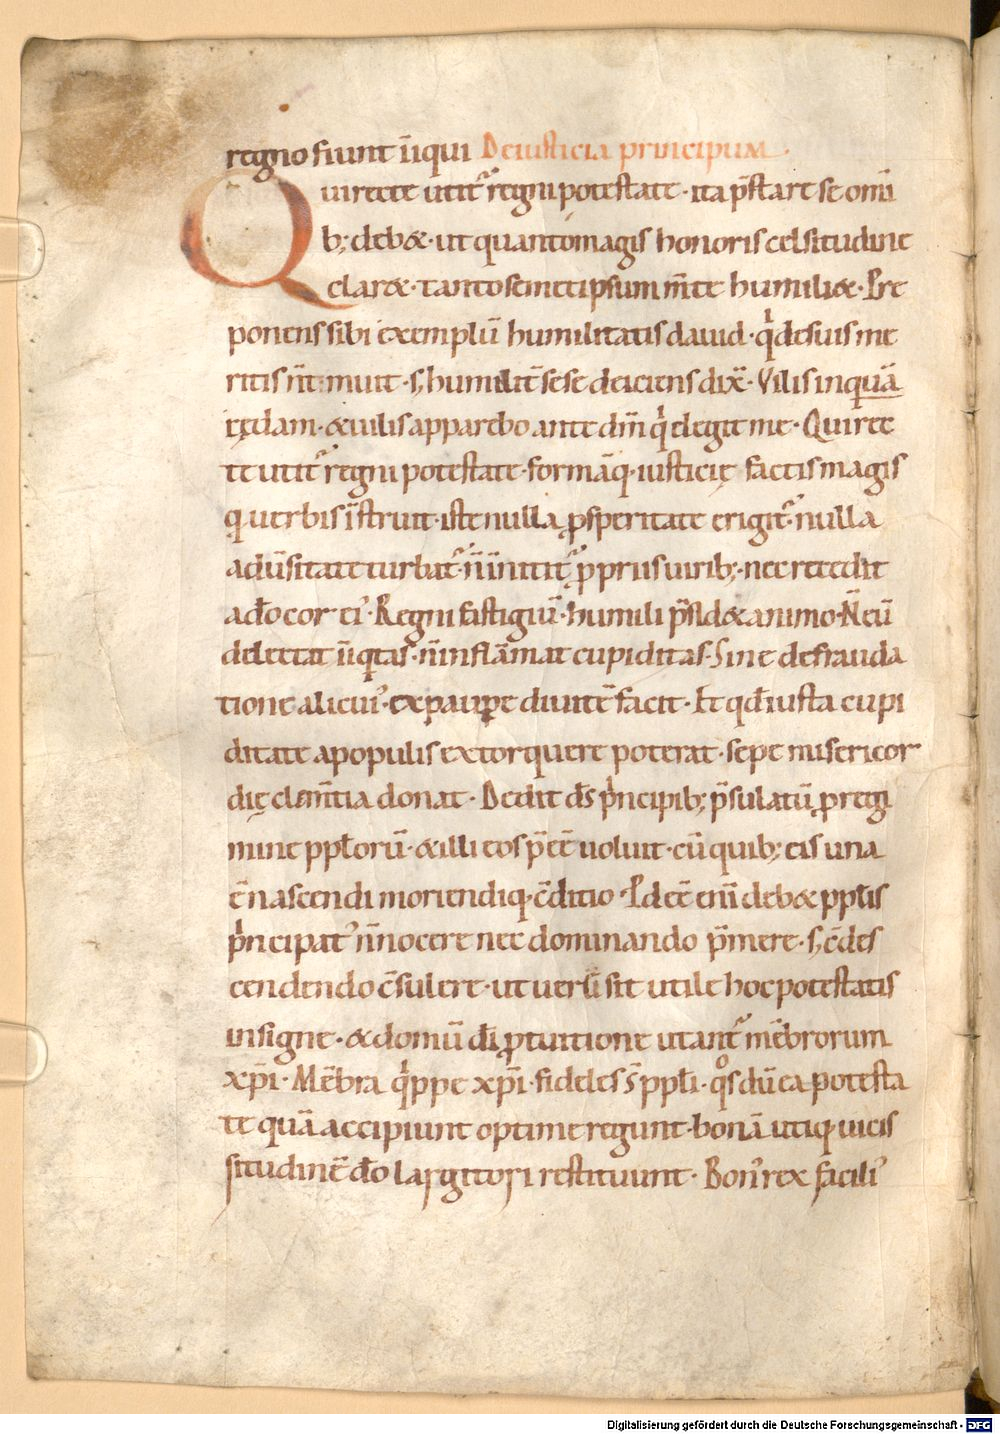 regno fiunt iniqui De iusticia principum
Qui recte utit᷑ regni potestate · ita p̄stare se om̄i
b; deb& · ut quanto magis honoris celsitudine
clar& · tanto semetipsum m̄te humili& · Pre
ponens sibi exemplū humilitatis dauid · qͥ de suis me
ritis n̄ t:muit · s; humilit̄ sese deiciens dix̄ · Vilis inquā
ı̨edam · & uilis apparebo ante dn̄m qͥ elegit me · Qui rec
te utit᷑ regni potestate · formāq; iusticię factis magis
qͣ uerbis īstruit · iste nulla ꝓsperitate erigit᷑ · nulla
adūsitate turbat᷑ · n̄ īnitit᷑ ꝓpriis uirib; · nec recedit
a dō cor ei᷒ · Regni fastigiū · humili p̄sid& animo · N̄ eū
delectat īiqͥtas · n̄ inflāmat cupiditas · Sine defrauda
tione alicui᷒ · ex paup̱e diuitē facit · Et qd̄ iusta cupi
ditate a populis extorquere poterat · sepe misericor
dię clem̄tia donat · Dedit ds̄ pͥncipib; p̄sulatū ꝓ regi
mine pplōrū · & illi eos p̄ēē uoluit · cū quib; eis una
ē nascendi moriendiq; c̄ditio · Pdēē enī deb& pplīs
pͥncipat᷒ n̄ nocere nec dominando p̄mere · s; c̄des
cendendo c̄sulere · ut uerū sit utile hoc potestatis
insigne · & domū dī ꝓ tuitione utant᷑ mēbrorum
xp̄i · Mēbra qͥppe xp̄i · fideles s̄ pplī · qͦs dū ea potesta
te quā accipiunt optime regunt · bonā utiq; uicis
situdinē dō largitori restituunt · Bon᷒ rex facili᷒
Digitalisierung gefördert durch die Deutsche Forschungsgemeinschaft - DFG